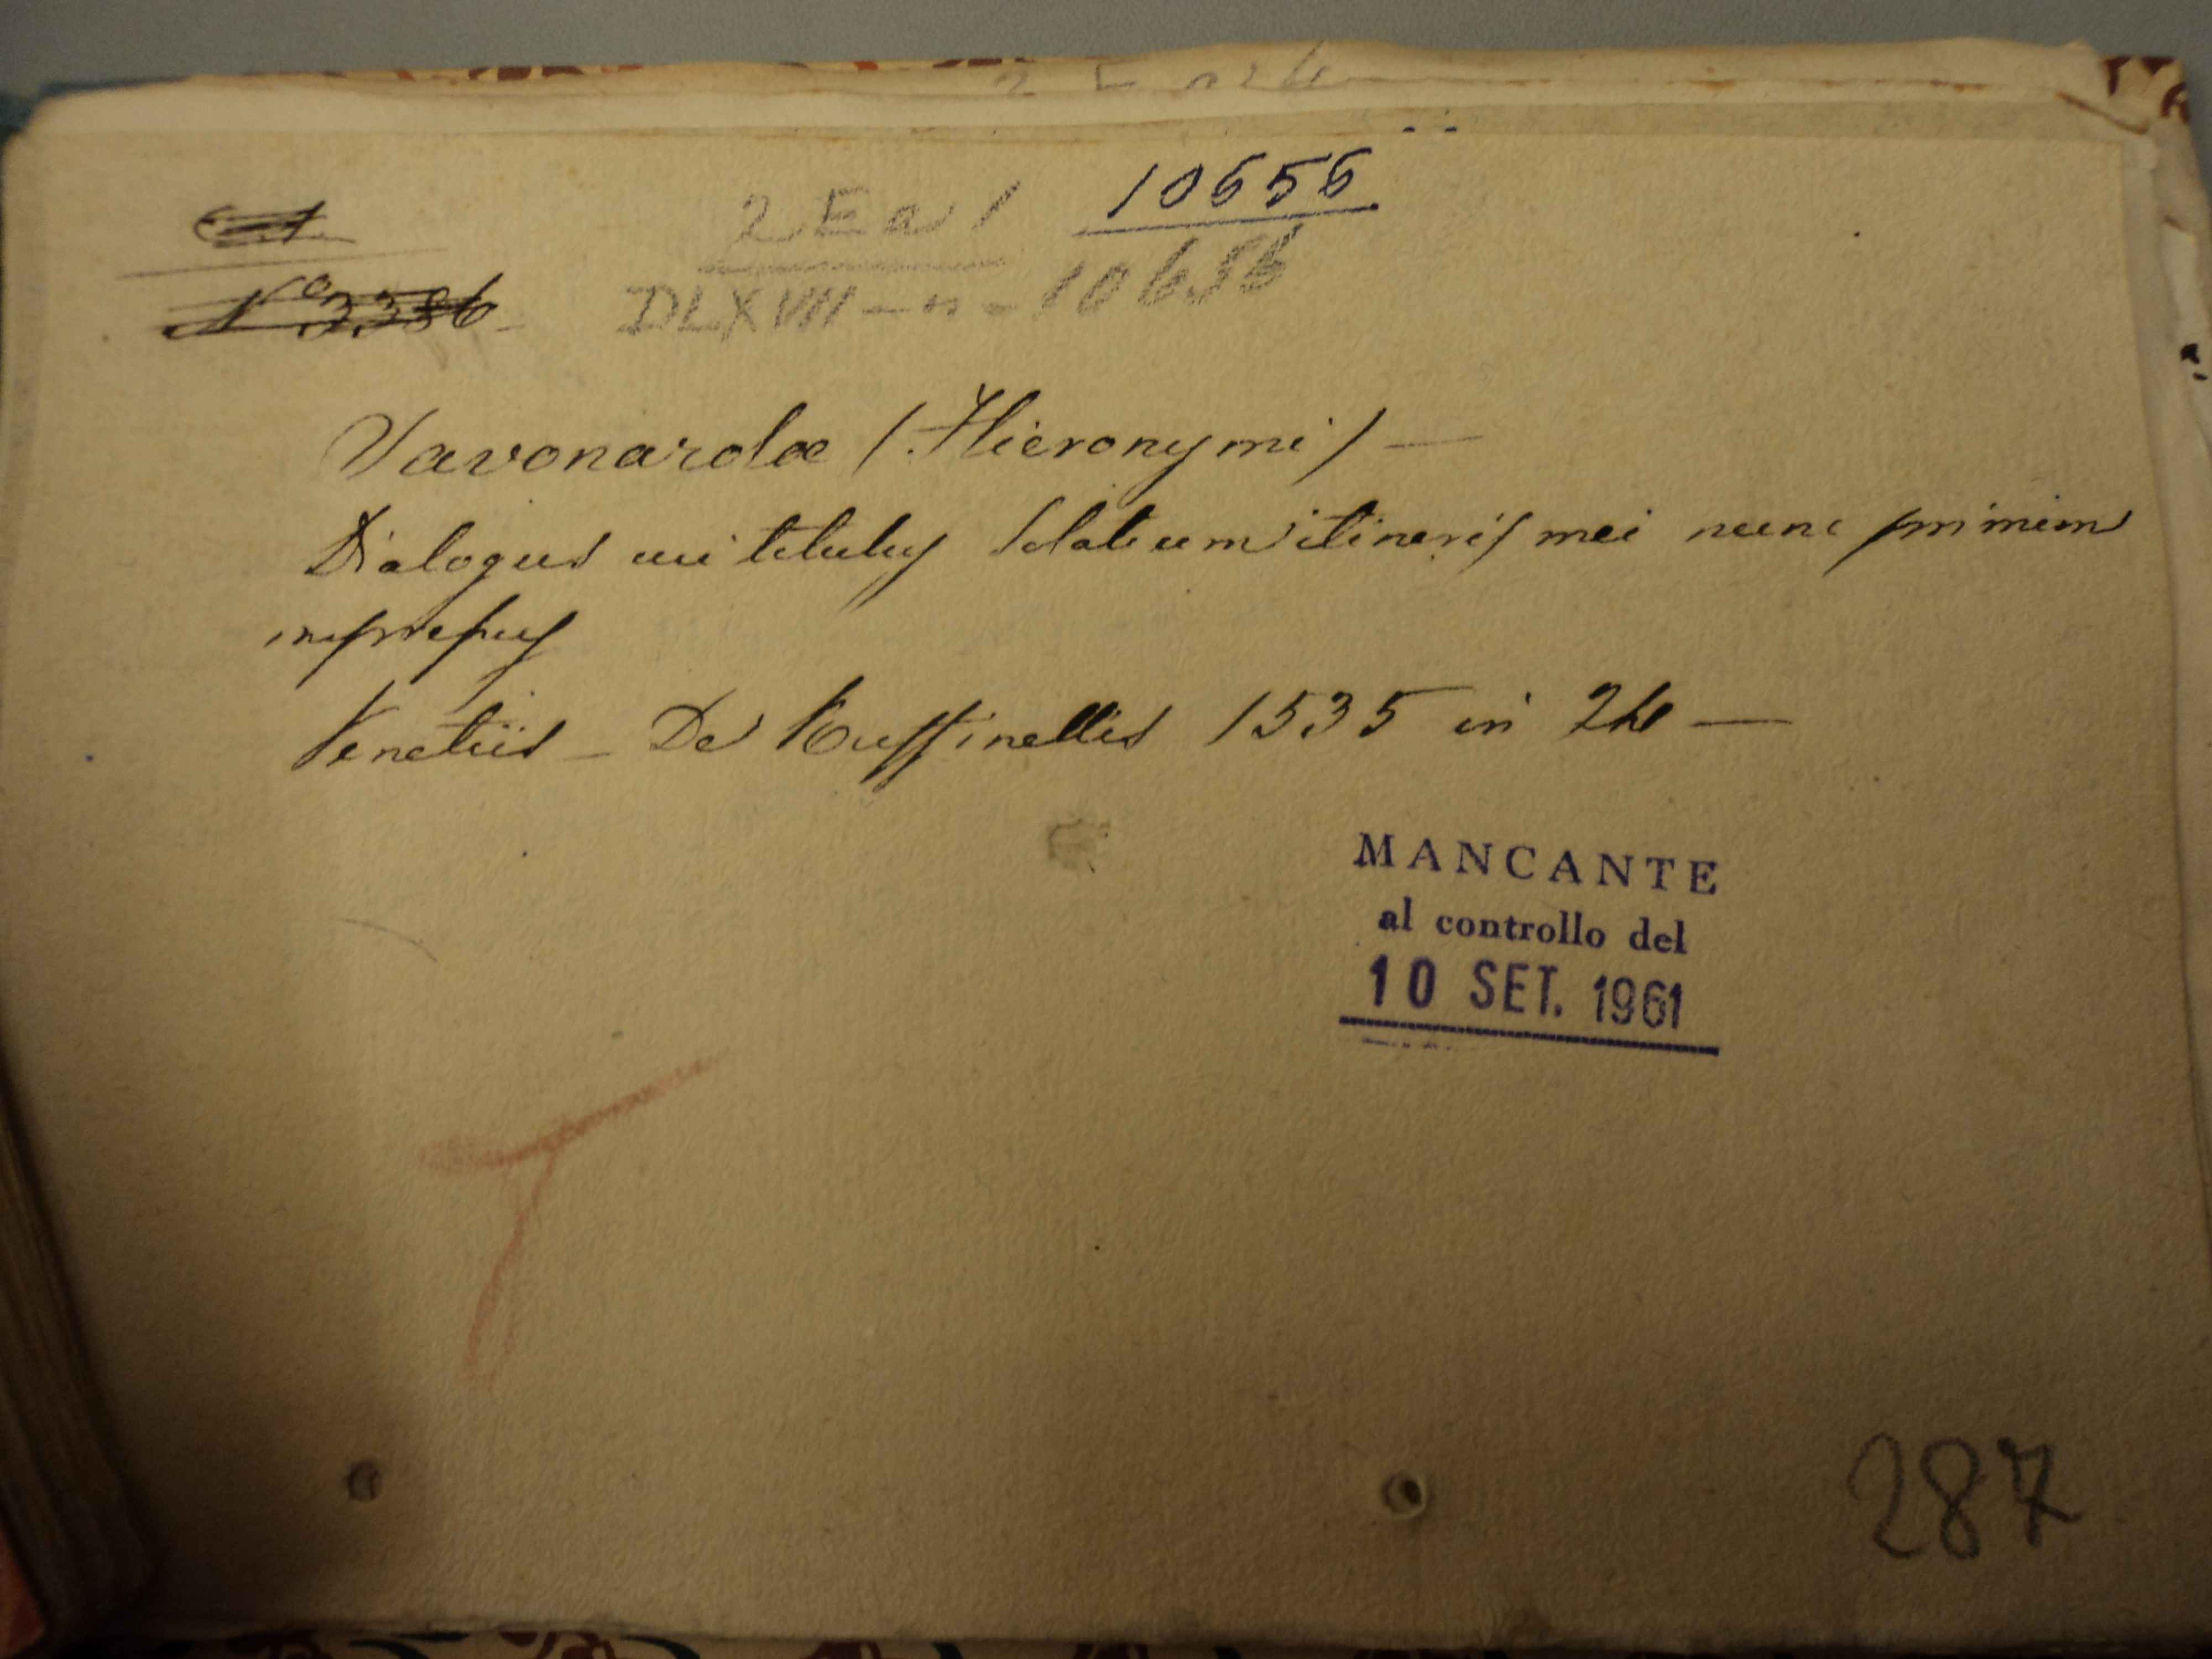 10656
2 E a 1
N° 3386
DLXVII - n - 10656
Savonarolæ (Hieronymi) —
Dialogus cui titulus Solatium itineris mei nunc primum
impressus
Venetiis - De Ruffinellis 1535 in 24 —
MANCANTE
al controllo del
10 SET. 1961
287